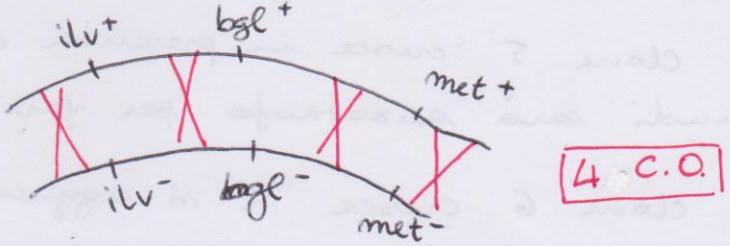 ilv+ bgl+ met+
ilv- bgl- met-
4 C.O.